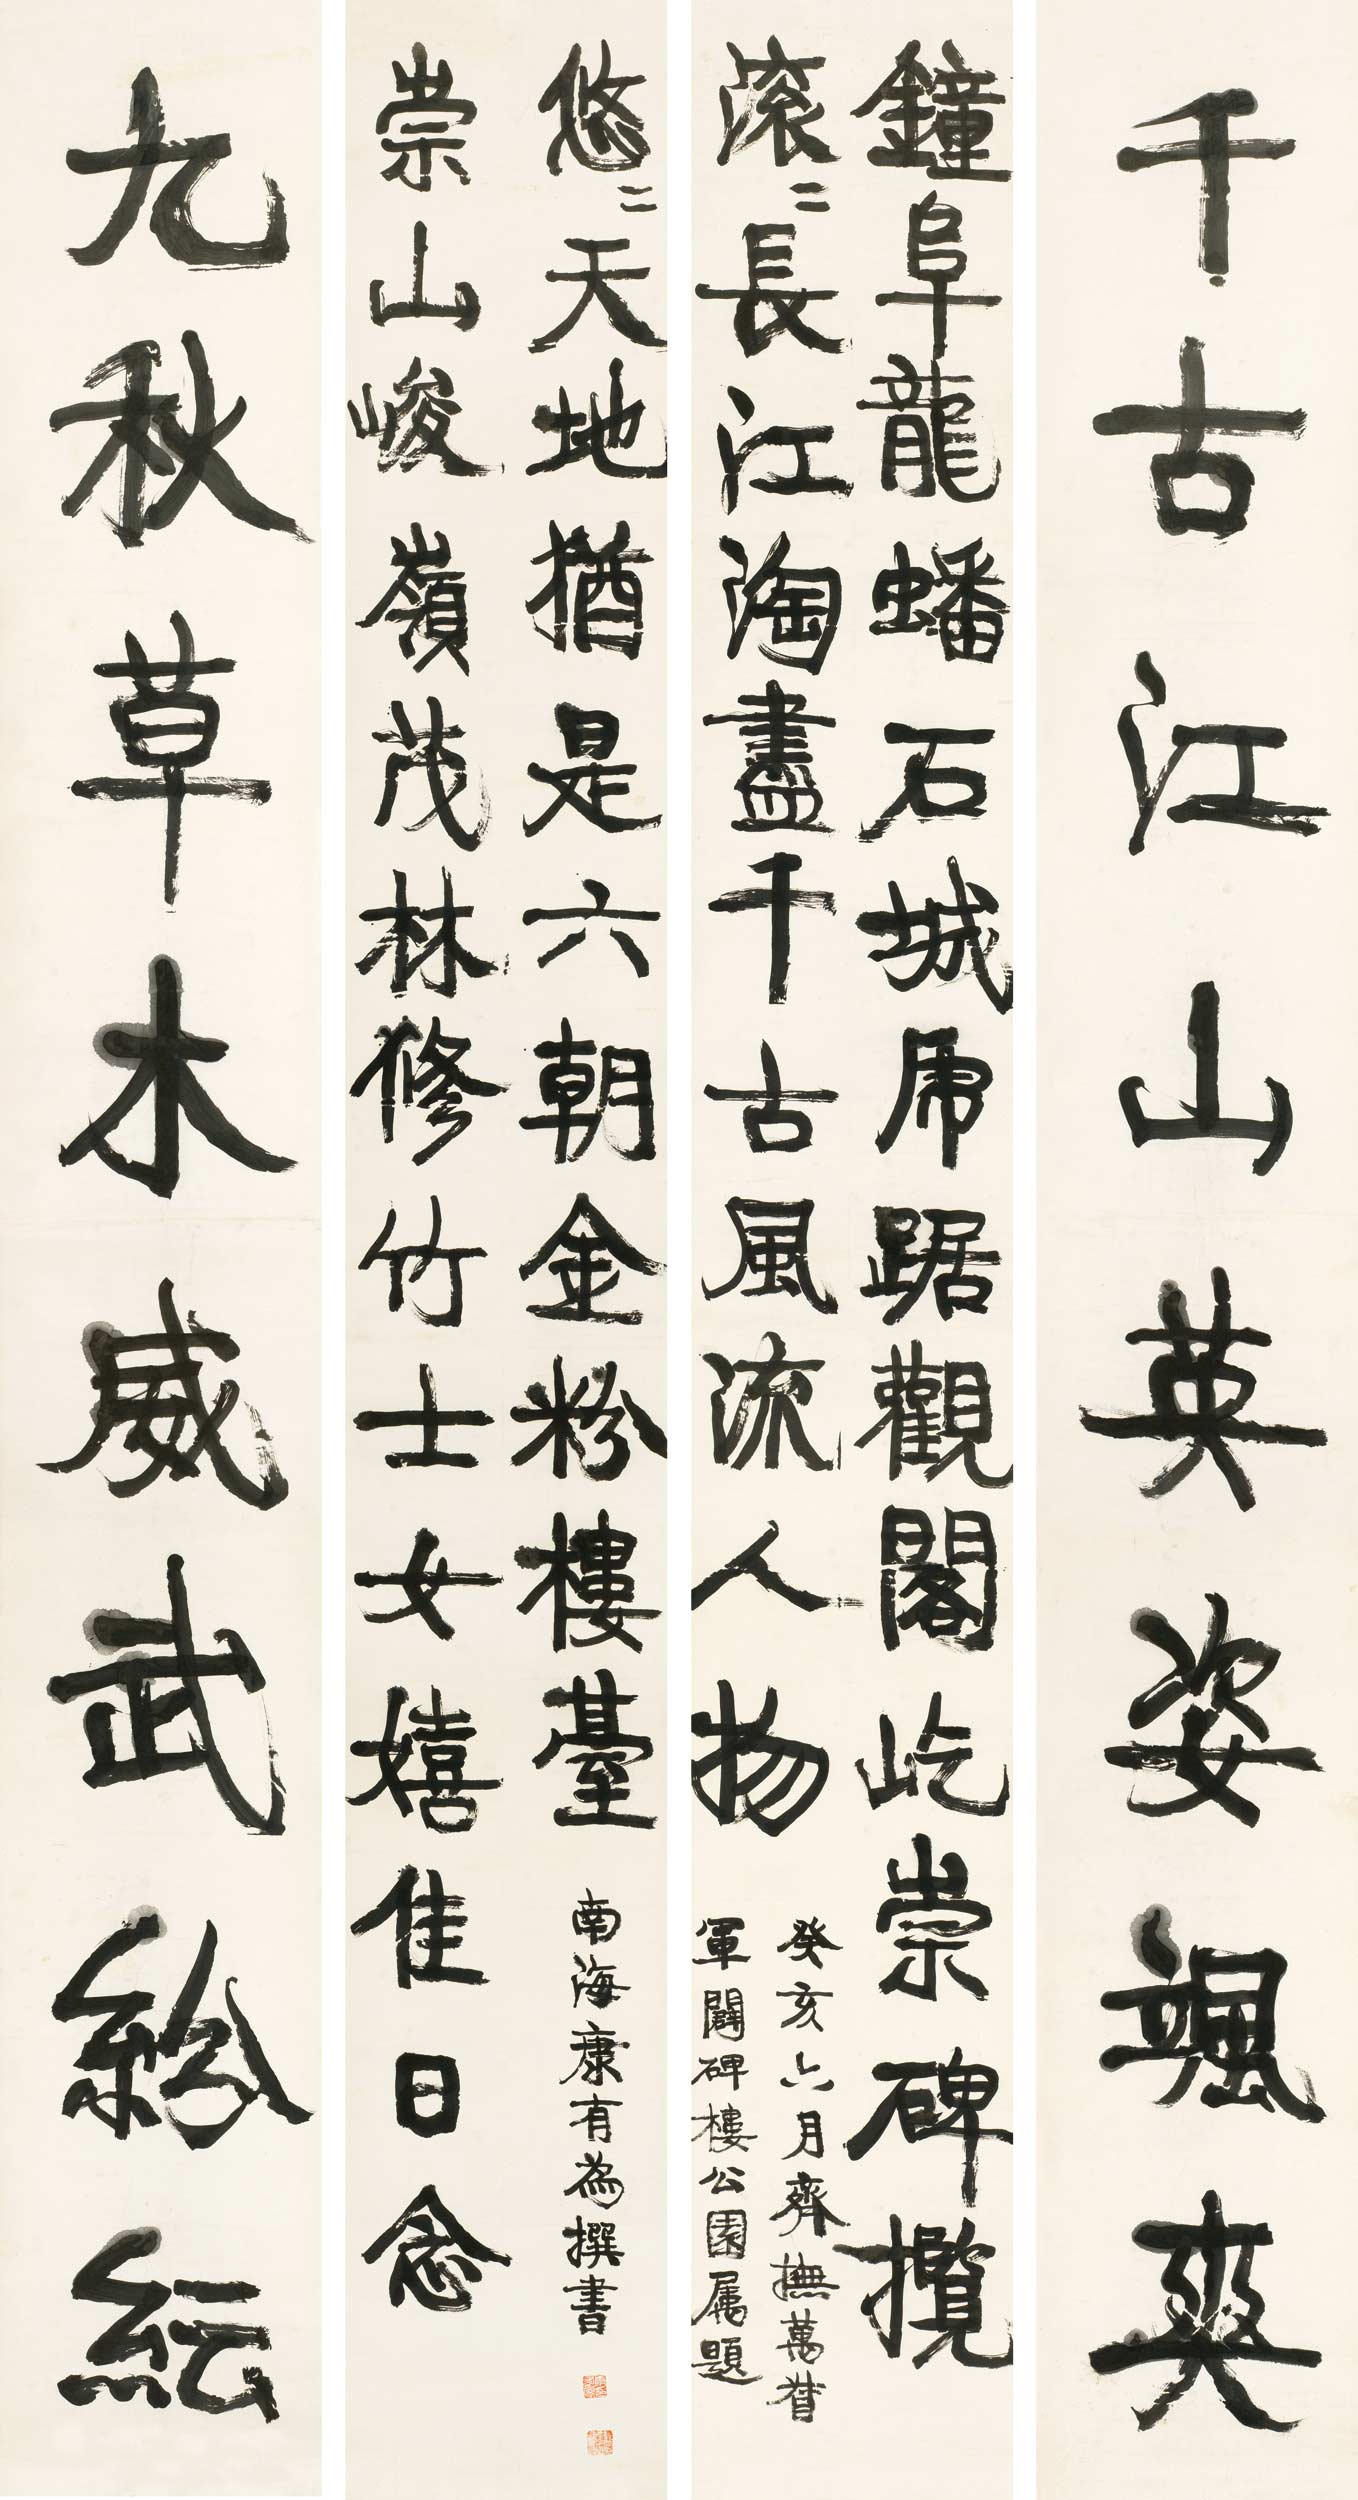 千古江山英姿颯爽
鐘阜龍蟠石城虎踞觀閣屹崇碑攬
滚二長江淘盡千古風流人物
癸亥六月齊撫萬督
軍闢碑樓公園属題
崇山峻嶺茂林修竹士女嬉佳日念
悠二天地猶是六朝金粉樓臺
南海康有為撰書
九秋草木威武紛紜